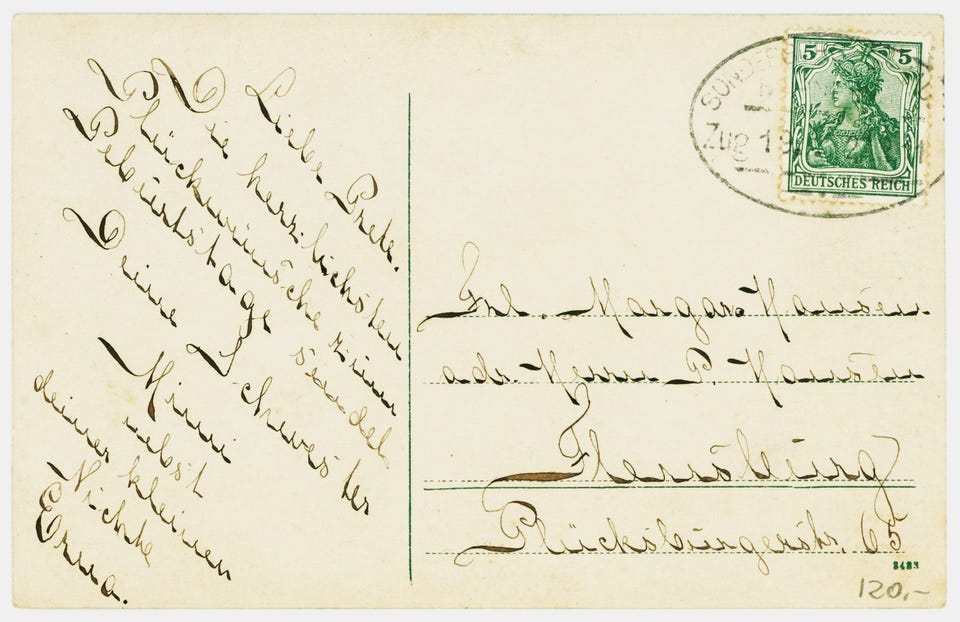 Liebe Grete.
Die herzlichsten
Glückwünsche zum
Geburtstage sendet
Deine Schwester
Mimi
nebst
deiner kleinen
Nichte
Erna.
SONDER
Zug 19
5 5
DEUTSCHES REICH
Frl. Margar. Hansen.
adr. Herrn P. Hansen
Flensburg
Glücksburgerstr. 65
8483
120,-